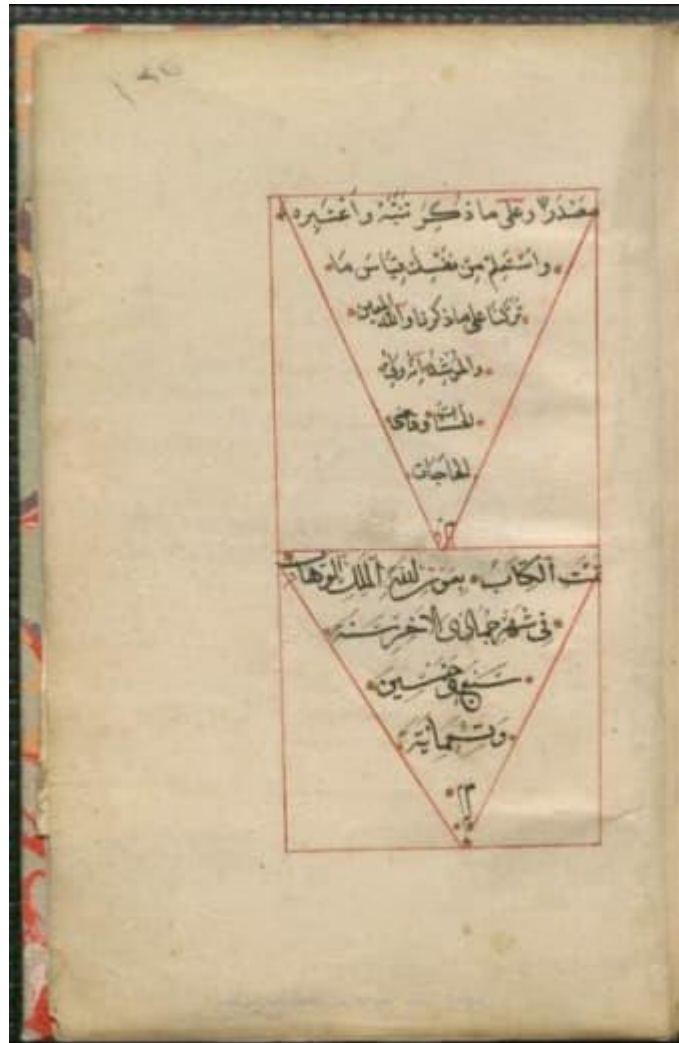 مصدرا وعلى ما ذكر تنبه واعتبره
واستعلم من نفسك قياس ما
تركنا على ما ذكرنا والله المعين
والمرشد انه ولي
الحسنات وقاضي
الحاجات
تمت الكتاب بعون الله الملك الوهاب
في شهر جمادى الاخر سنة
سبع وخمسين
وتسعماية
م